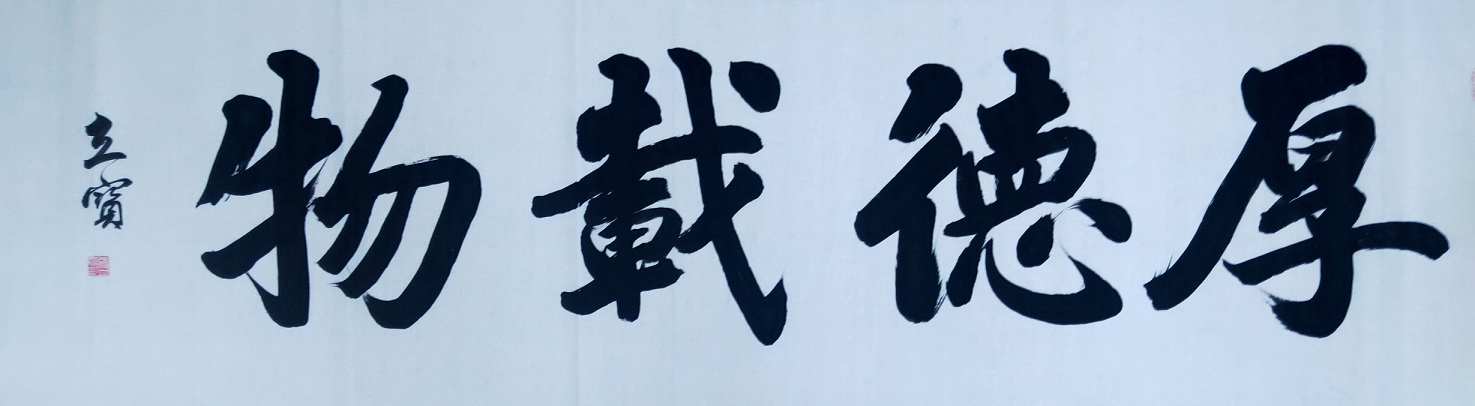 厚德載物
立寶